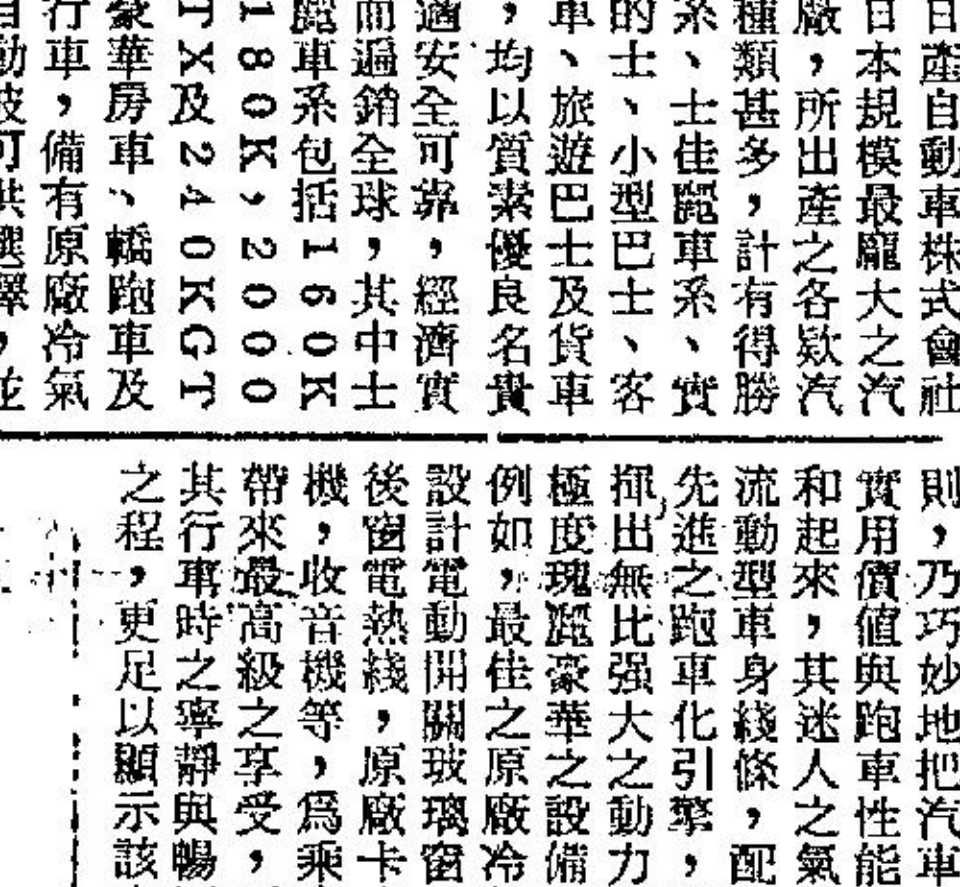 日產自動車株式會社
日本規模最龐大之汽
廠，所出產之各欵汽
種類甚多，計有得勝
系、士佳麗車系、實
的士、小型巴士、客
車、旅遊巴士及貨車
，均以質素優良名貴
適安全可靠，經濟實
而遍銷全球，其中士
麗車系包括160K
180K，2000
TX及240KGT
豪華房車、轎跑車及
行車，備有原廠冷氣
自動波可供選擇，並
則，乃巧妙地把汽車
實用價值與跑車性能
和起來，其迷人之氣
流動型車身綫條，配
先進之跑車化引擎，
揮出無比强大之動力
極度瑰麗豪華之設備
例如，最佳之原廠冷
設計電動開關玻璃窗
後窗電熱綫，原廠卡
機，收音機等，爲乘
帶來最高級之享受，
其行車時之寧靜與暢
之程，更足以顯示該